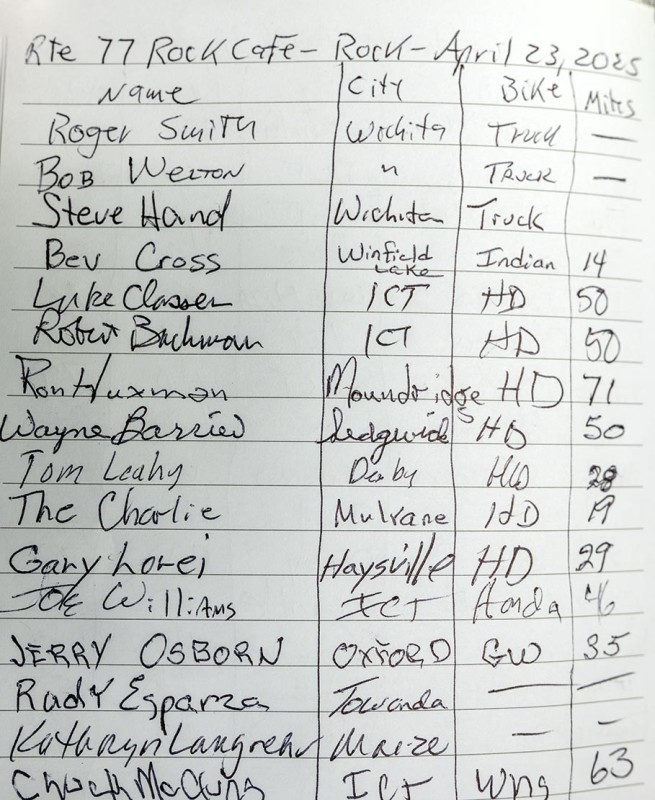 Rte 77 Rock Cafe - Rock - April 23, 2025
Name City Bike Miles
Roger Smith Wichita Truck —
Bob Welton " Truck —
Steve Hand Wichita Truck
Bev Cross Winfield Lake Indian 14
Luke Classen ICT HD 50
Robert Bachman ICT HD 50
Ron Huxman Moundridge HD 71
Wayne Barrier Sedgwick HD 50
Tom Leahy Derby HD 28
The Charlie Mulvane HD 19
Gary Lorei Haysville HD 29
Joe Williams ICT Honda
JERRY OSBORN OXFORD GW 35
Rudy Esparza Towanda — —
Kathryn Langrehr Maize — —
Chuck McClung ICT Wng 63